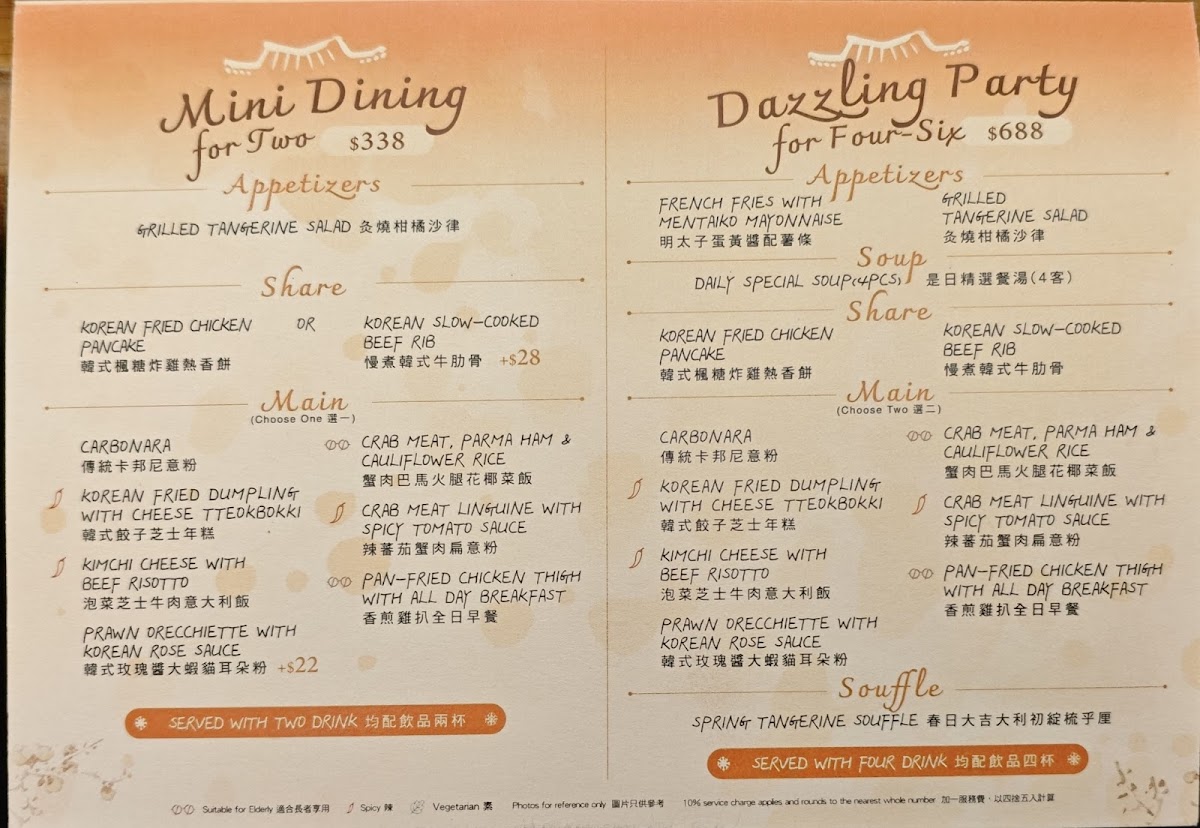 Mini Dining
for Two $338
Appetizers
GRILLED TANGERINE SALAD 炙燒柑橘沙律
Share
KOREAN FRIED CHICKEN
PANCAKE
韓式楓糖炸雞熱香餅
OR
KOREAN SLOW-COOKED
BEEF RIB
慢煮韓式牛肋骨 +$28
Main
(Choose One 選一)
CARBONARA
傳統卡邦尼意粉
KOREAN FRIED DUMPLING
WITH CHEESE TTEOKBOKKI
韓式餃子芝士年糕
KIMCHI CHEESE WITH
BEEF RISOTTO
泡菜芝士牛肉意大利飯
PRAWN ORECCHIETTE WITH
KOREAN ROSE SAUCE
韓式玫瑰醬大蝦貓耳朵粉 +$22
CRAB MEAT, PARMA HAM &
CAULIFLOWER RICE
蟹肉巴馬火腿花椰菜飯
CRAB MEAT LINGUINE WITH
SPICY TOMATO SAUCE
辣蕃茄蟹肉扁意粉
PAN-FRIED CHICKEN THIGH
WITH ALL DAY BREAKFAST
香煎雞扒全日早餐
SERVED WITH TWO DRINK 均配飲品兩杯
Dazzling Party
for Four-Six $688
Appetizers
FRENCH FRIES WITH
MENTAIKO MAYONNAISE
明太子蛋黃醬配薯條
GRILLED
TANGERINE SALAD
炙燒柑橘沙律
Soup
DAILY SPECIAL SOUP(4PCS) 是日精選餐湯(4客)
Share
KOREAN FRIED CHICKEN
PANCAKE
韓式楓糖炸雞熱香餅
KOREAN SLOW-COOKED
BEEF RIB
慢煮韓式牛肋骨
Main
(Choose Two 選二)
CARBONARA
傳統卡邦尼意粉
KOREAN FRIED DUMPLING
WITH CHEESE TTEOKBOKKI
韓式餃子芝士年糕
KIMCHI CHEESE WITH
BEEF RISOTTO
泡菜芝士牛肉意大利飯
PRAWN ORECCHIETTE WITH
KOREAN ROSE SAUCE
韓式玫瑰醬大蝦貓耳朵粉
CRAB MEAT, PARMA HAM &
CAULIFLOWER RICE
蟹肉巴馬火腿花椰菜飯
CRAB MEAT LINGUINE WITH
SPICY TOMATO SAUCE
辣蕃茄蟹肉扁意粉
PAN-FRIED CHICKEN THIGH
WITH ALL DAY BREAKFAST
香煎雞扒全日早餐
Souffle
SPRING TANGERINE SOUFFLE 春日大吉大利初綻梳乎厘
SERVED WITH FOUR DRINK 均配飲品四杯
Suitable for Elderly 適合長者享用 Spicy 辣 Vegetarian 素 Photos for reference only 圖片只供參考 10% service charge applies and rounds to the nearest whole number 加一服務費，以四捨五入計算